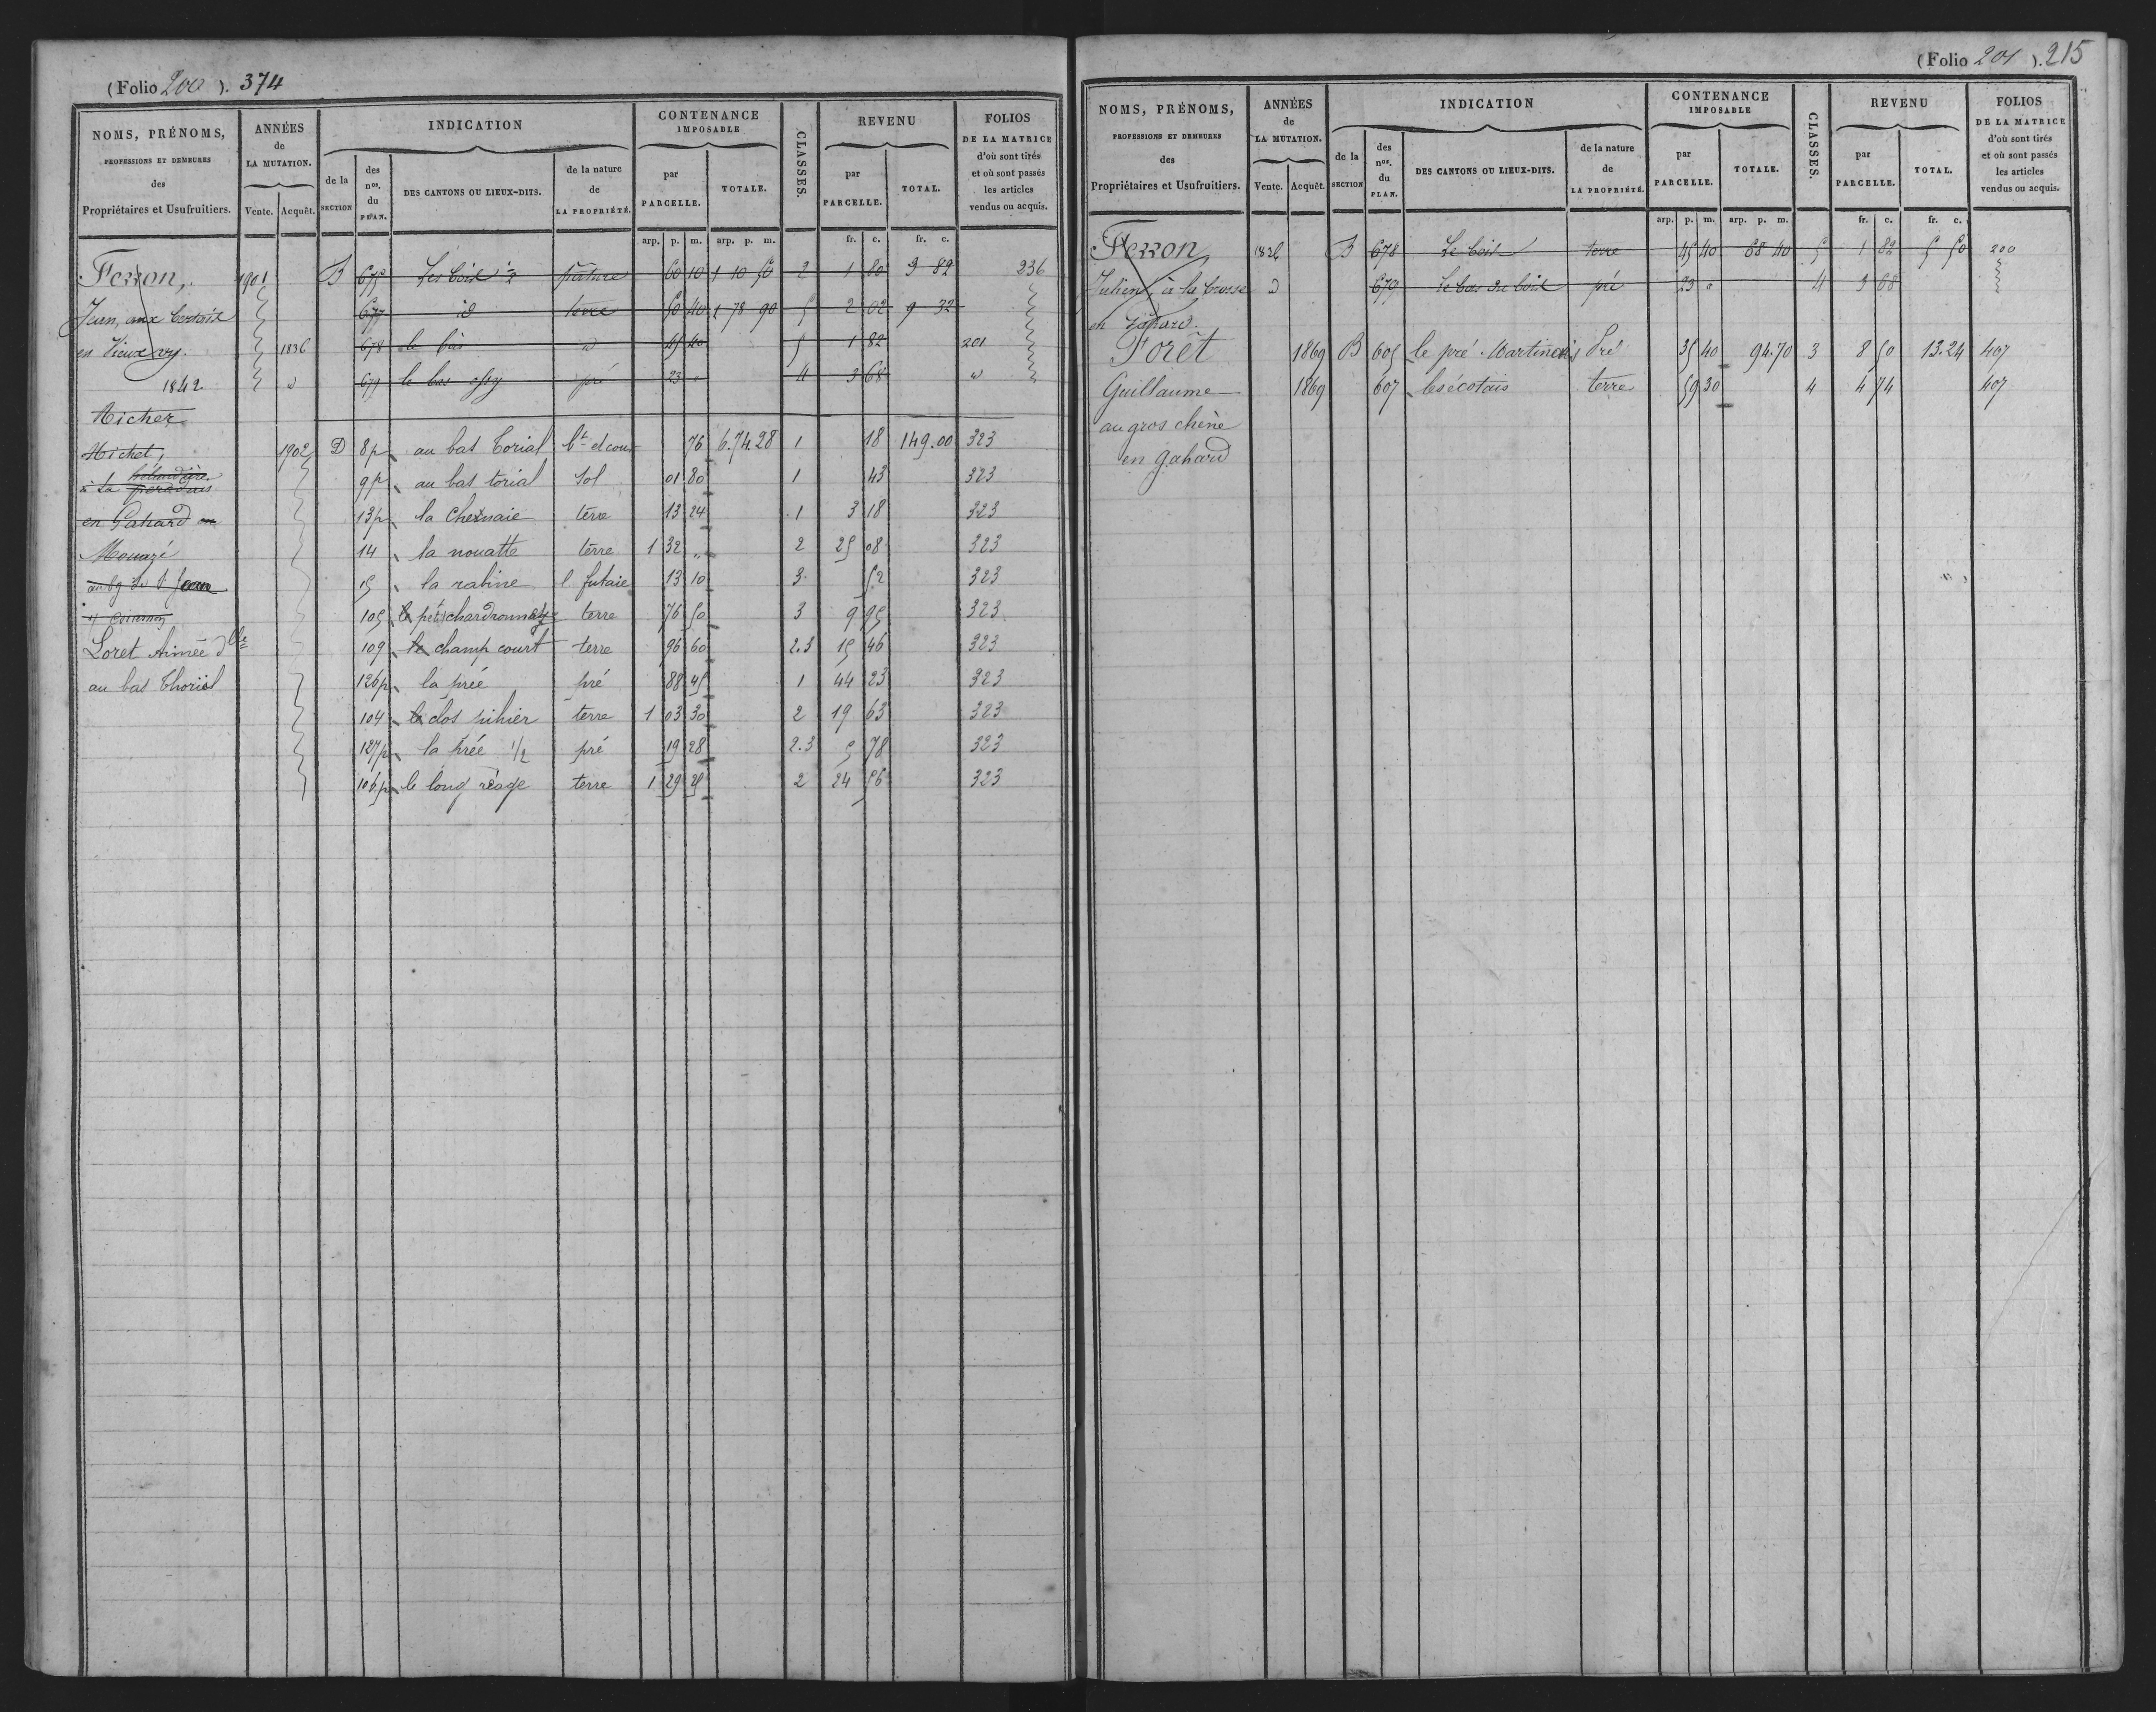 (Folio 200). 374
NOMS, PRÉNOMS, PROFESSIONS ET DEMEURES des Propriétaires et Usufruitiers.
ANNÉES de LA MUTATION. Vente. Acquêt.
INDICATION
de la SECTION
des nos. du PLAN.
DES CANTONS OU LIEUX-DITS.
de la nature de LA PROPRIÉTÉ.
CONTENANCE IMPOSABLE
par PARCELLE. TOTALE.
CLASSES.
REVENU
par PARCELLE. TOTAL.
FOLIOS DE LA MATRICE d'où sont tirés et où sont passés les articles vendus ou acquis.
arp. p. m. arp. p. m. fr. c. fr. c.
Ferron, 1901 B 675 Les bois 1/2 pâture 60 10 1 10 50 2 1 80 3 82 236
Jean, aux 677 id terre 50 40 1 78 90 5 2 02 9 32
en Vieuxvy. 1836 678 le bois d 45 40 5 1 82 201
1842 d 679 le bas pré 23 " 4 3 68 d
Micher
Michel, 1902 D 8p au bas Torial bt et cour 76 6.74.28 1 18 149.00 323
à la 9p au bas torial Sol 01 80 1 43 323
en Gahard 13p la Chesnaie terre 13 24 1 3 18 323
Mouazé 14 la nouatte terre 1 32 " 2 25 08 323
au bg de St Jean 15 la rabine l futaie 13 10 3 52 323
s/ Couesnon 105 le petit terre 76 50 3 9 95 323
Loret Aimée dlle 109 le champ court terre 96 60 2.3 15 46 323
au bas Thorial 126p la prée pré 88 45 1 44 23 323
104 le clos terre 1 03 30 2 19 63 323
127p la prée 1/2 pré 19 28 2.3 5 78 323
106p le long réage terre 1 29 25 2 24 56 323
(Folio 201). 215
NOMS, PRÉNOMS, PROFESSIONS ET DEMEURES des Propriétaires et Usufruitiers.
ANNÉES de LA MUTATION. Vente. Acquêt.
INDICATION
de la SECTION
des nos. du PLAN.
DES CANTONS OU LIEUX-DITS.
de la nature de LA PROPRIÉTÉ.
CONTENANCE IMPOSABLE
par PARCELLE. TOTALE.
CLASSES.
REVENU
par PARCELLE. TOTAL.
FOLIOS DE LA MATRICE d'où sont tirés et où sont passés les articles vendus ou acquis.
arp. p. m. arp. p. m. fr. c. fr. c.
Ferron 1836 B 678 Le bois terre 45 40 68 40 5 1 82 5 50 200
Julien, à la brosse d 679 Le bas du bois pré 23 " 4 3 68
en Gahard.
Forêt 1869 B 605 le pré Martinet Pré 35 40 94.70 3 8 50 13.24 407
Guillaume 1869 607 les écotais terre 59 30 4 4 74 407
au gros chêne
en gahard